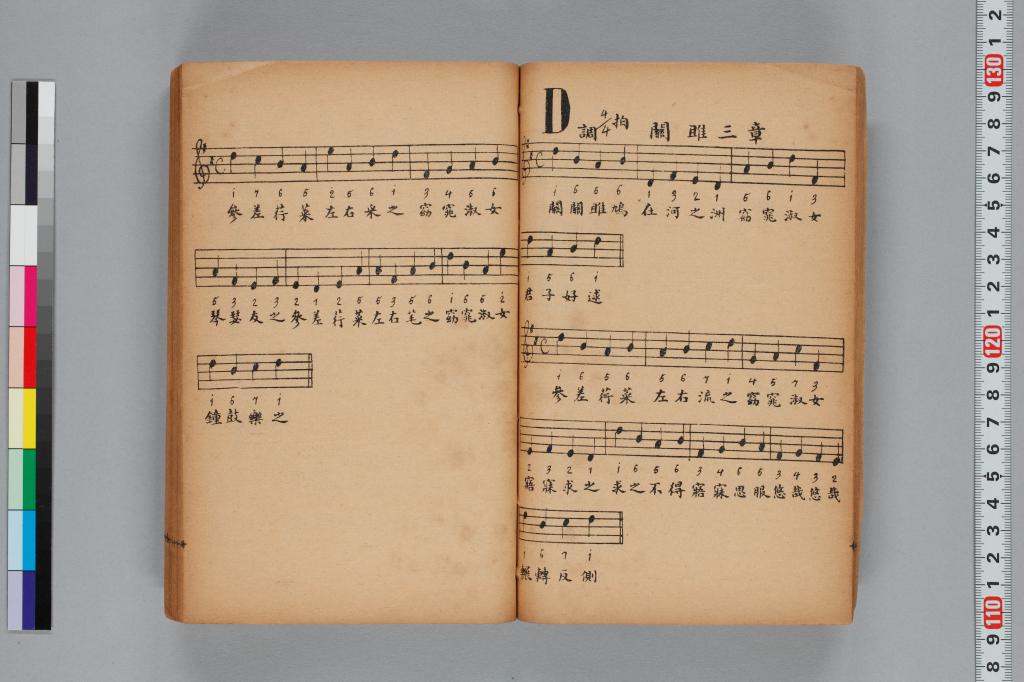 D調 4/4拍 關雎三章
i 6 5 6 1 3 2 1 5 6 i 3
關關雎鳩 在河之洲 窈窕淑女
i 5 6 i
君子好逑
i 6 5 6 5 6 7 i 4 5 7 3
參差荇菜 左右流之 窈窕淑女
2 3 2 1 i 6 5 6 3 4 6 5 3 4 3 2
寤寐求之 求之不得 寤寐思服悠哉悠哉
i 6 7 i
輾轉反側
i 7 6 5 2 5 6 i 3 4 5 6
參差荇菜 左右采之 窈窕淑女
5 3 2 3 2 1 2 5 5 3 5 6 i 6 5 2
琴瑟友之參差荇菜左右芼之窈窕淑女
i 6 7 i
鐘鼓樂之